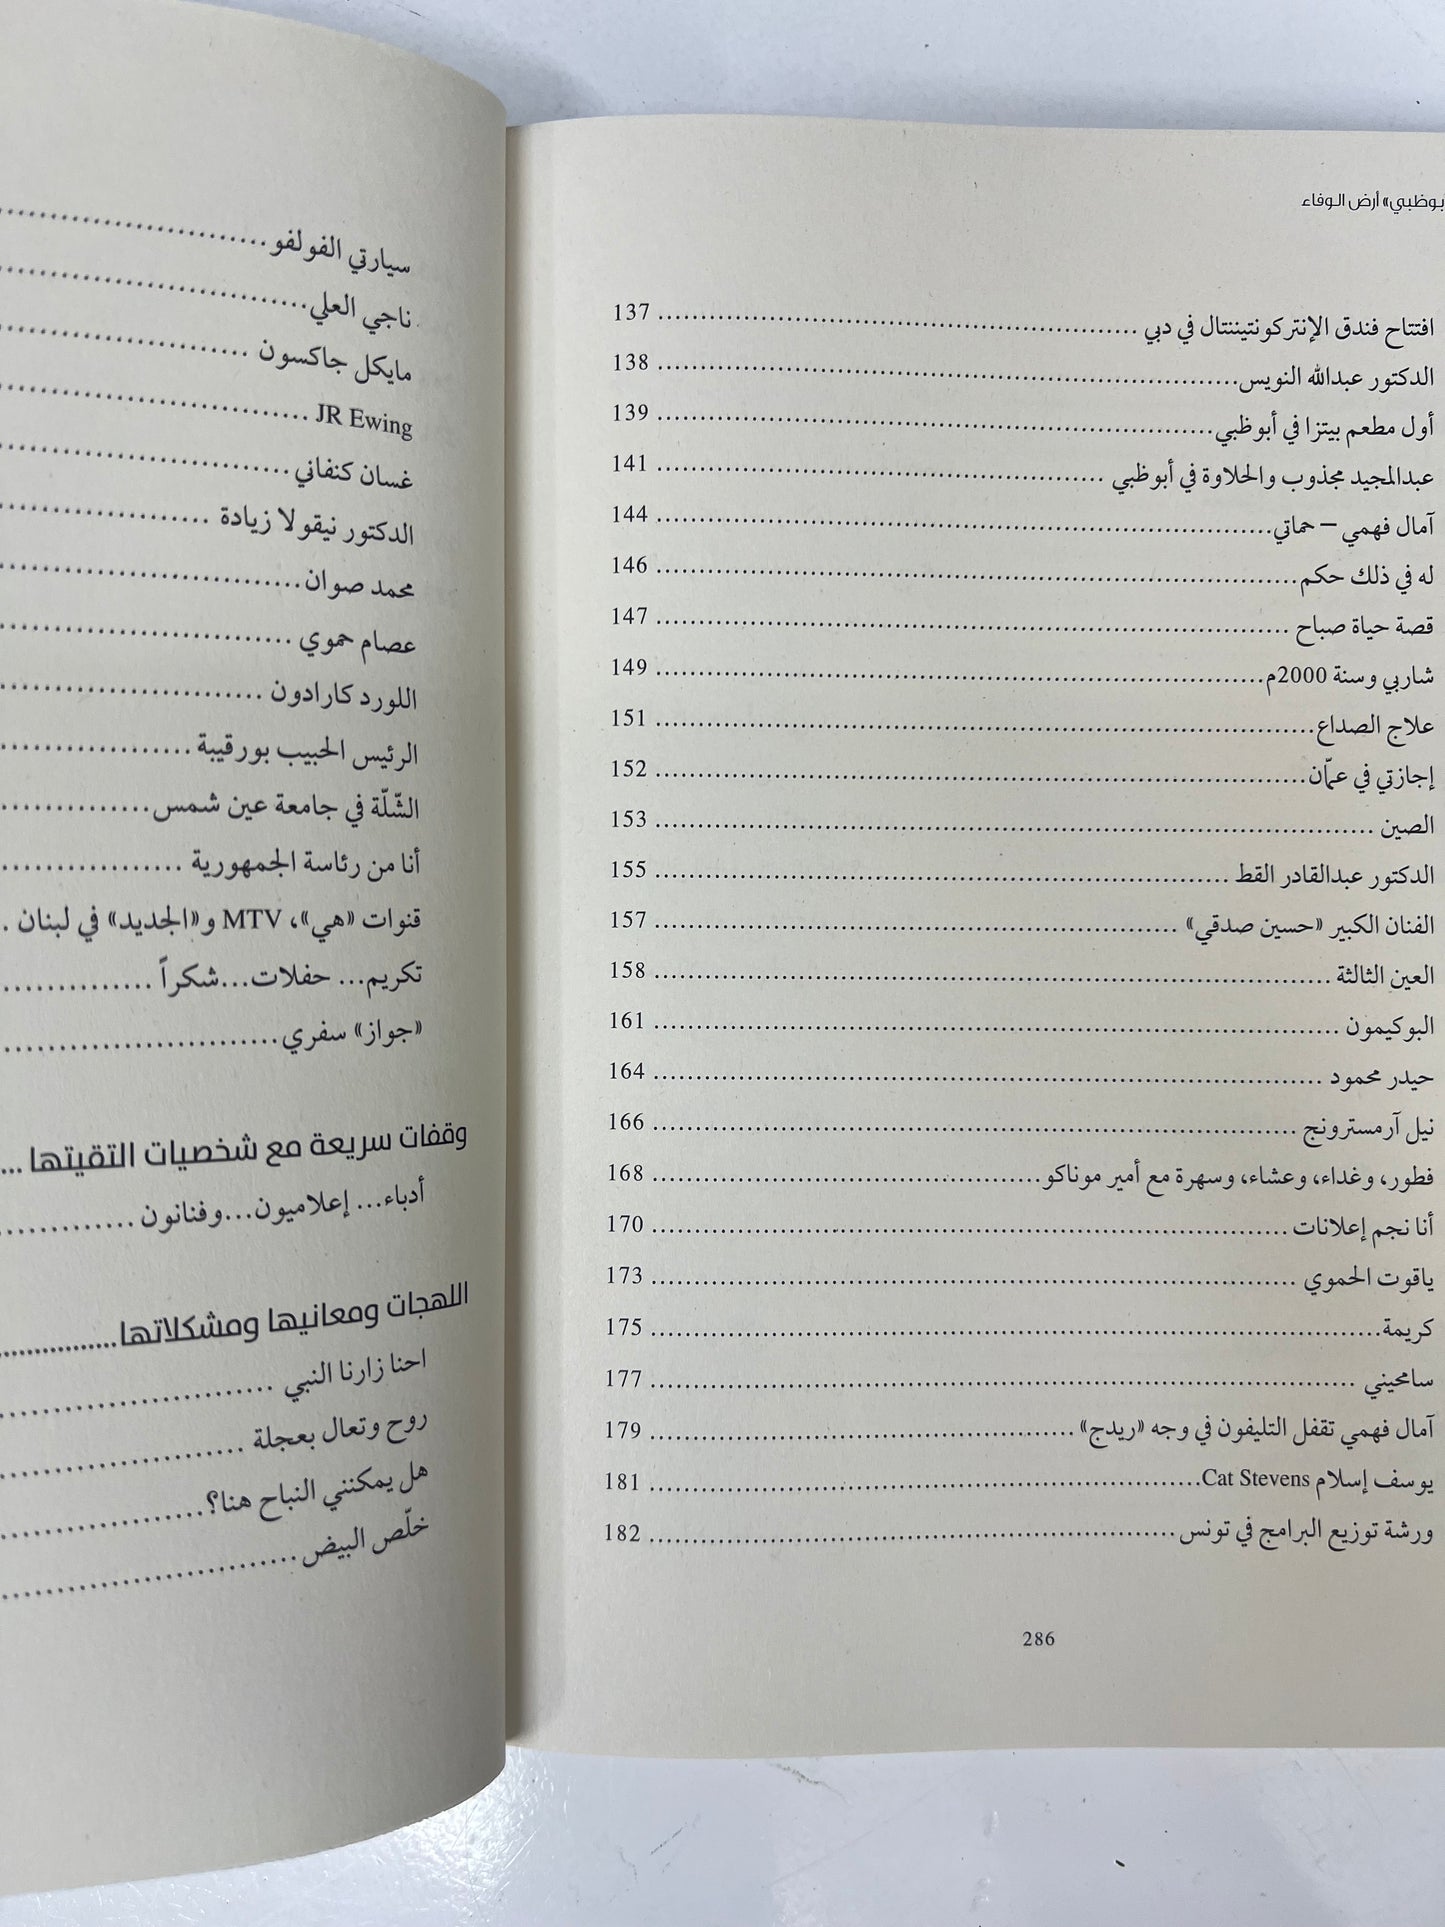 بوظبي» أرض الوفاء
افتتاح فندق الإنتركونتيننتال في دبي ........ 137
الدكتور عبدالله النويس ........ 138
أول مطعم بيتزا في أبوظبي ........ 139
عبدالمجيد مجذوب والحلاوة في أبوظبي ........ 141
آمال فهمي – حماتي ........ 144
له في ذلك حكم ........ 146
قصة حياة صباح ........ 147
شاربي وسنة 2000م ........ 149
علاج الصداع ........ 151
إجازتي في عمّان ........ 152
الصين ........ 153
الدكتور عبدالقادر القط ........ 155
الفنان الكبير «حسين صدقي» ........ 157
العين الثالثة ........ 158
البوكيمون ........ 161
حيدر محمود ........ 164
نيل آرمسترونج ........ 166
فطور، وغداء، وعشاء، وسهرة مع أمير موناكو ........ 168
أنا نجم إعلانات ........ 170
ياقوت الحموي ........ 173
كريمة ........ 175
سامحيني ........ 177
آمال فهمي تقفل التليفون في وجه «ريدج» ........ 179
يوسف إسلام Cat Stevens ........ 181
ورشة توزيع البرامج في تونس ........ 182
286
سيارتي الفولفو ........
ناجي العلي ........
مايكل جاكسون ........
JR Ewing ........
غسان كنفاني ........
الدكتور نيقولا زيادة ........
محمد صوان ........
عصام حموي ........
اللورد كارادون ........
الرئيس الحبيب بورقيبة ........
الشّلّة في جامعة عين شمس ........
أنا من رئاسة الجمهورية ........
قنوات «هي»، MTV و«الجديد» في لبنان .
تكريم... حفلات...شكراً ........
«جواز» سفري ........
وقفات سريعة مع شخصيات التقيتها ...
أدباء... إعلاميون...وفنانون ........
اللهجات ومعانيها ومشكلاتها ........
احنا زارنا النبي ........
روح وتعال بعجلة ........
هل يمكنني النباح هنا؟ ........
خلّص البيض ........